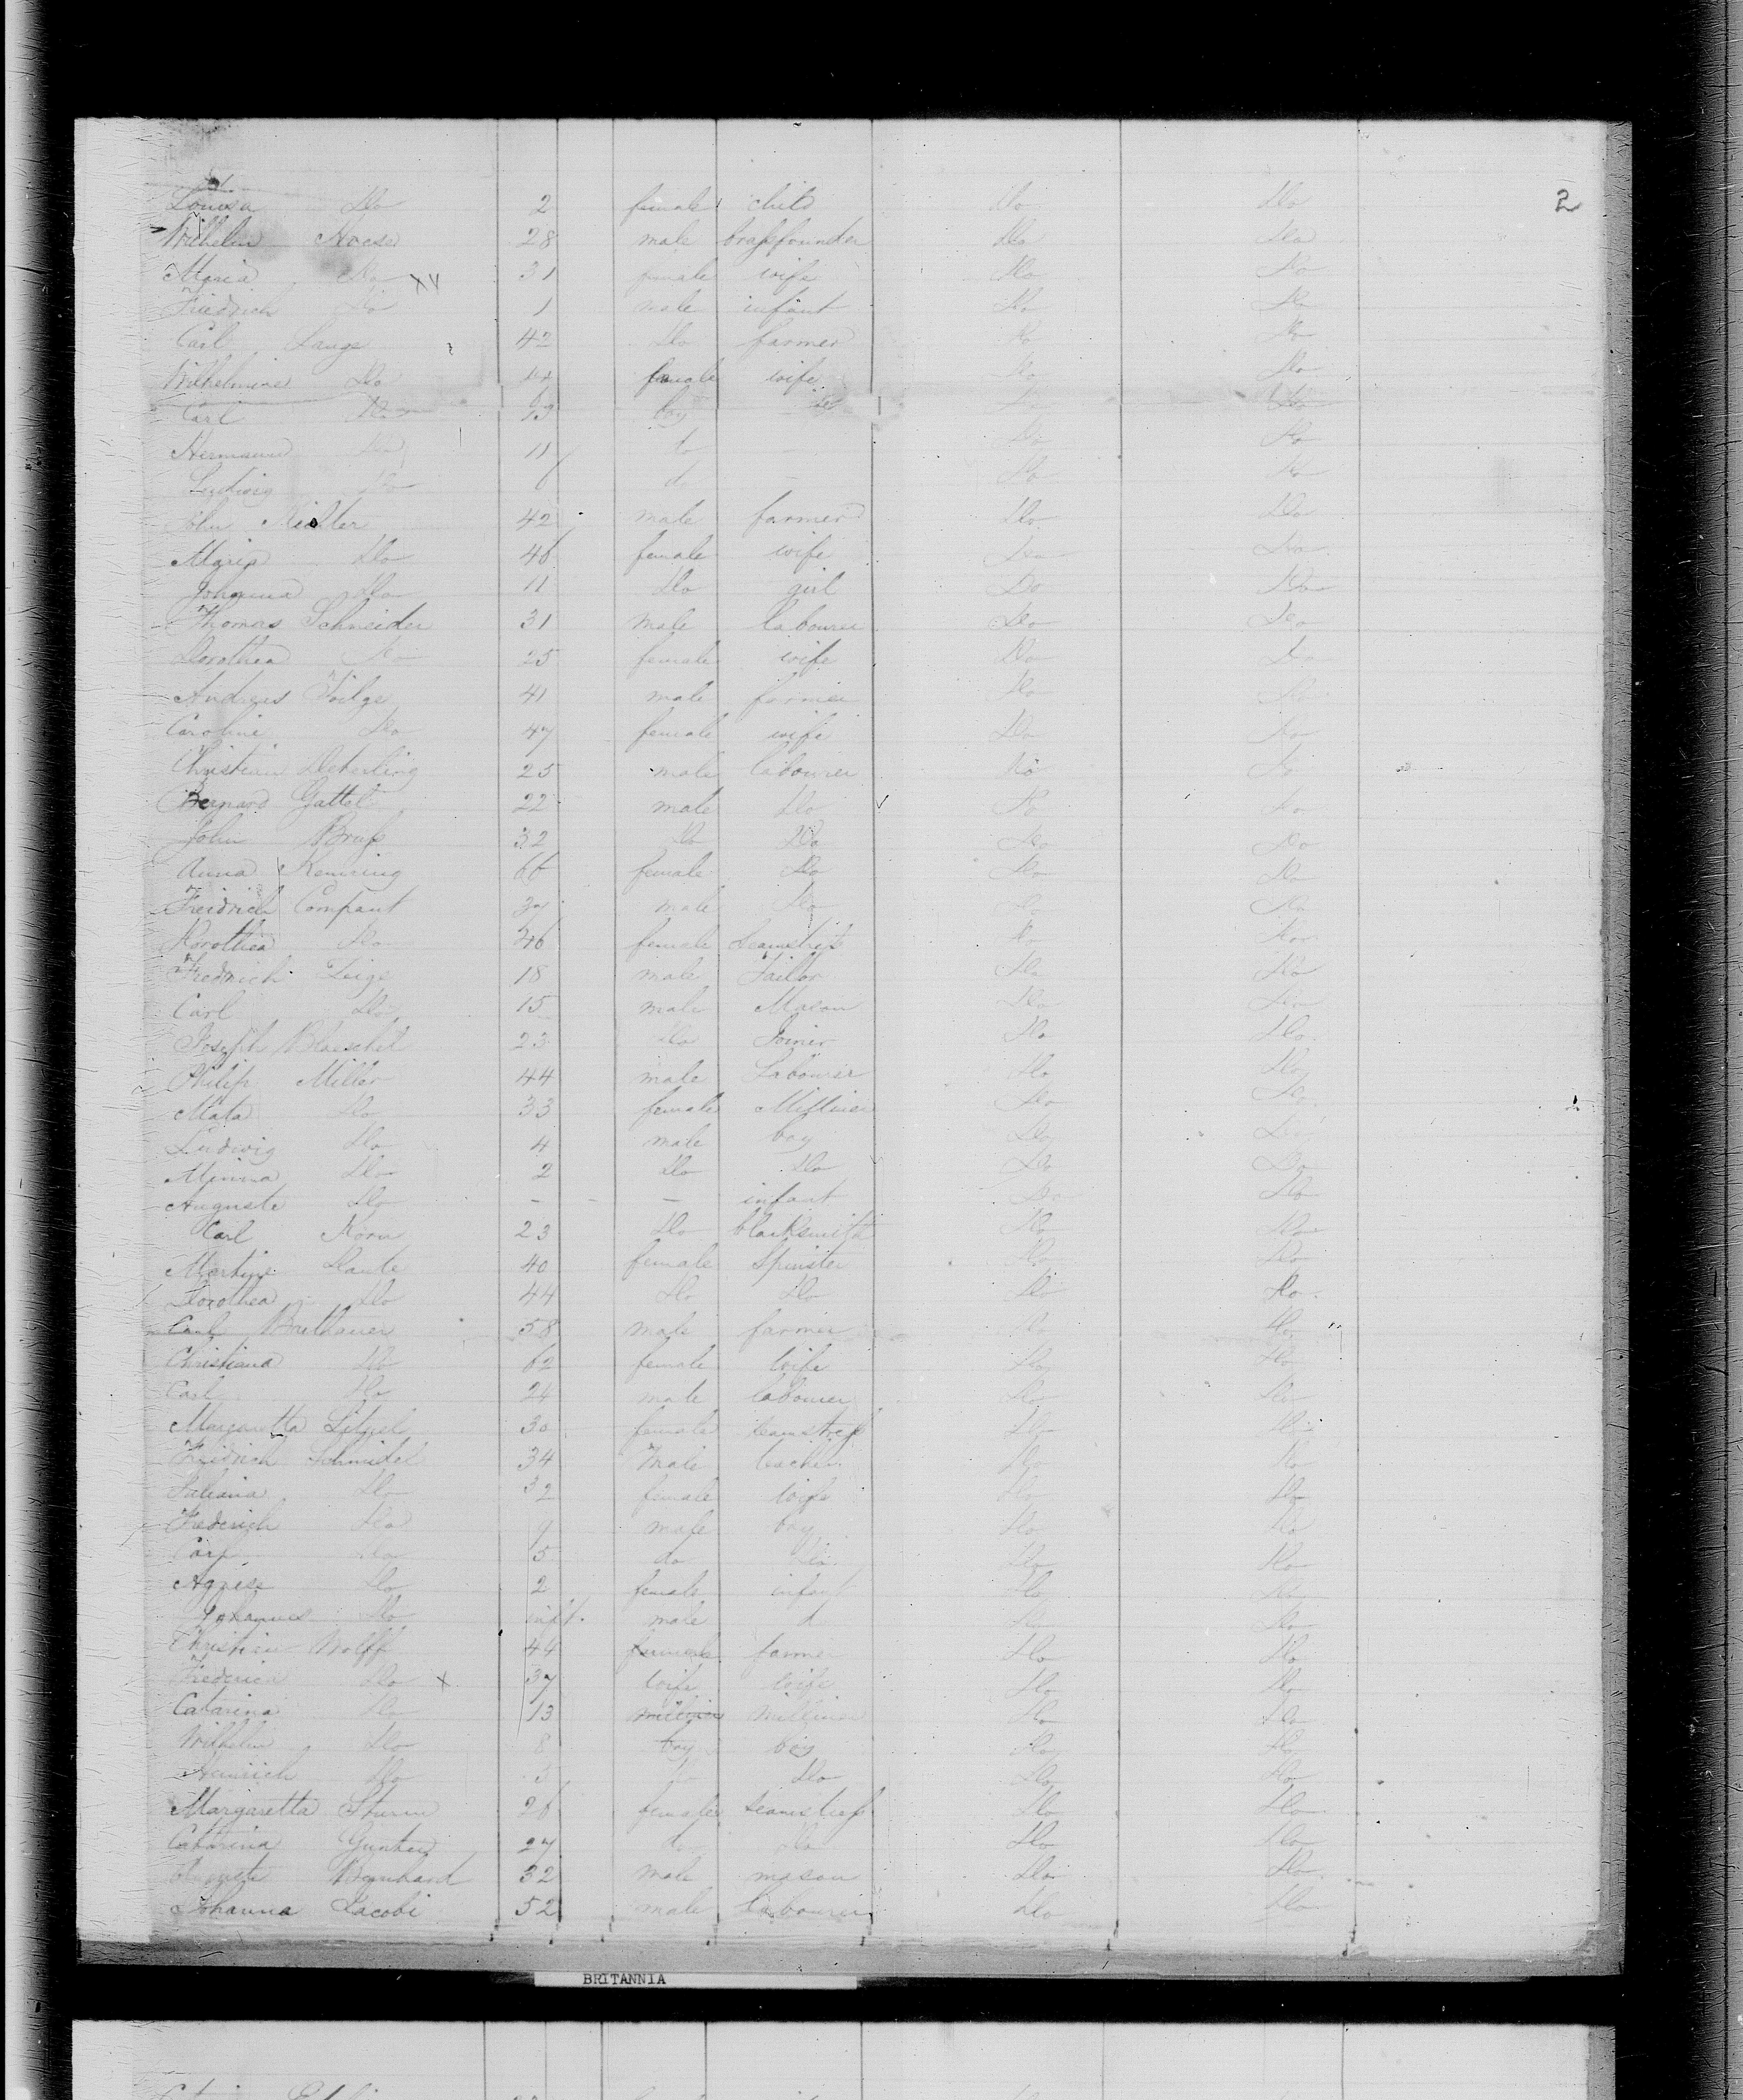 2
Louisa Do 2 female child Do Do
Wilhelm Hoese 28 male brassfounder Do Do
Maria Do 31 female wife Do Do
Friedrich Do 1 male infant Do Do
Carl Lange 42 Do farmer Do Do
Wilhelmine Do female wife Do Do
Carl Do 13 boy Do Do
Hermann Do 11 do Do Do
Ludwig Do 6 do Do Do
John Richter 42 male farmer Do Do
Maria Do 46 female wife Do Do
Johanna Do 11 Do girl Do Do
Thomas Schneider 31 male labourer Do Do
Dorothea Do 25 female wife Do Do
Andreas 41 male farmer Do Do
Caroline Do 47 female wife Do Do
Christian Deterling 25 male labourer Do Do
Bernard Gattel 22 male Do Do Do
John Bruss 32 Do Do Do Do
Anna 66 female Do Do Do
Freidrich Compart male Do Do Do
Dorothea Do 46 female Seamstress Do Do
Fredrich Feige 18 male Tailor Do Do
Carl Do 15 male Mason Do Do
Joseph Blaschet 23 Do Joiner Do Do
Philip Miller 44 male Labourer Do Do
Mata Do 33 female Milliner Do Do
Ludwig Do 4 male boy Do Do
Minna Do 2 Do Do Do Do
Auguste Do - - - infant Do Do
Carl Korn 23 Do blacksmith Do Do
Martine Daute 40 female Spinster Do Do
Dorothea Do 44 Do Do Do Do
Carl Brethauer 58 male farmer Do Do
Christiana Do 62 female wife Do Do
Carl Do 24 male labourer Do Do
Margaretta 30 female seamstress Do Do
Friedrich Schmidel 34 Male teacher Do Do
Juliana Do 32 female wife Do Do
Frederich Do 9 male boy Do Do
Carl Do 5 do Do Do Do
Agnese Do 2 female infant Do Do
Johannes Do inft. male d Do Do
Christian Wolff 44 farmer Do Do
Frederica Do x 37 wife wife Do Do
Catarina Do 13 milliner Milliner Do Do
Wilhelm Do 8 boy boy Do Do
Heinrich Do 3 Do Do Do Do
Margaretta Sturm 26 female seamstress Do Do
Catarina Gunther 27 do Do Do Do
Auguste Bernhard 32 male mason Do Do
Johanna Jacobi 52 male labourer Do Do
BRITANNIA